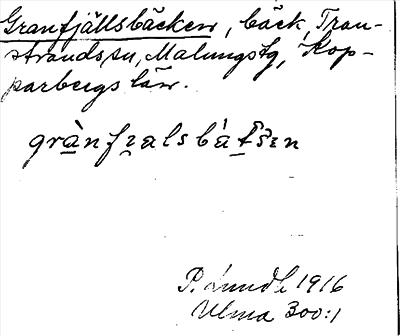 Granfjällsbäcken, bäck, Tran-
strands sn, Malungs tg, Kop-
parbergs län.
grànfɪalsbátʃɛn
P. Lundh 1916
Ulma 300:1